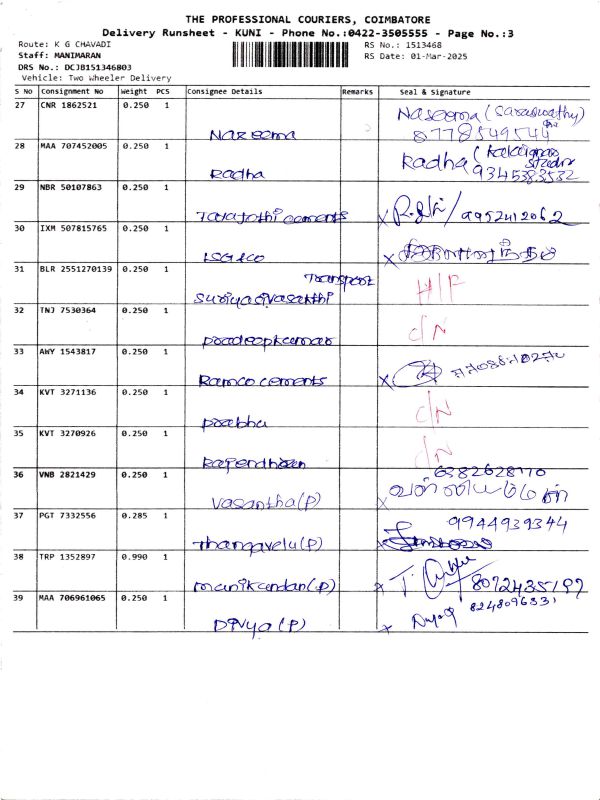 THE PROFESSIONAL COURIERS, COIMBATORE
Delivery Runsheet - KUNI - Phone No.:0422-3505555 - Page No.:3
Route: K G CHAVADI
RS No.: 1513468
Staff: MANIMARAN
RS Date: 01-Mar-2025
DRS No.: DCJB151346803
Vehicle: Two Wheeler Delivery
S No Consignment No Weight PCS Consignee Details Remarks Seal & Signature
27 CNR 1862521 0.250 1 Nazeema Naseema (Saraswathy)
28 MAA 707452005 0.250 1 Radha Radha
9345383532
29 NBR 50107863 0.250 1 cements 9952412062
30 IXM 507815765 0.250 1
31 BLR 2551270139 0.250 1 Transport H/F
Suriyasivasakthi
32 TNJ 7530364 0.250 1 pradeepkumar C/N
33 AWY 1543817 0.250 1 Ramco cements
34 KVT 3271136 0.250 1 prabhu C/N
35 KVT 3270926 0.250 1 Rajendhran C/N
36 VNB 2821429 0.250 1 Vasantha(P) 6382628770
37 PGT 7332556 0.285 1 Thangavelu(P) 9944939344
38 TRP 1352897 0.990 1 manikandan(P) 8072435197
39 MAA 706961065 0.250 1 Divya(P)